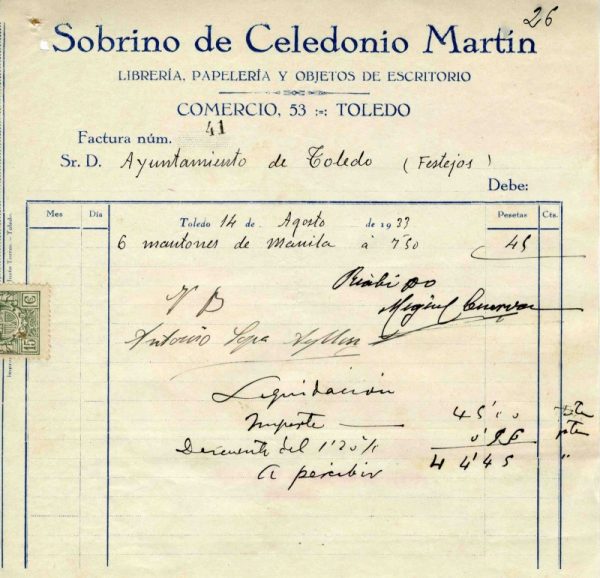 26
Sobrino de Celedonio Martín
LIBRERÍA, PAPELERÍA Y OBJETOS DE ESCRITORIO
COMERCIO, 53 :-: TOLEDO
Factura núm. 41
Sr. D. Ayuntamiento de Toledo (Festejos)
Debe:
Mes Día Pesetas Cts.
Toledo 14 de Agosto de 1933
6 mantones de Manila á 7'50 45
Recibí
Miguel Cuerva
Vº Bº
Antonio
Liquidación
Importe 45'00
Descuento del 1'20 %
A percibir 44'45 "
15 C